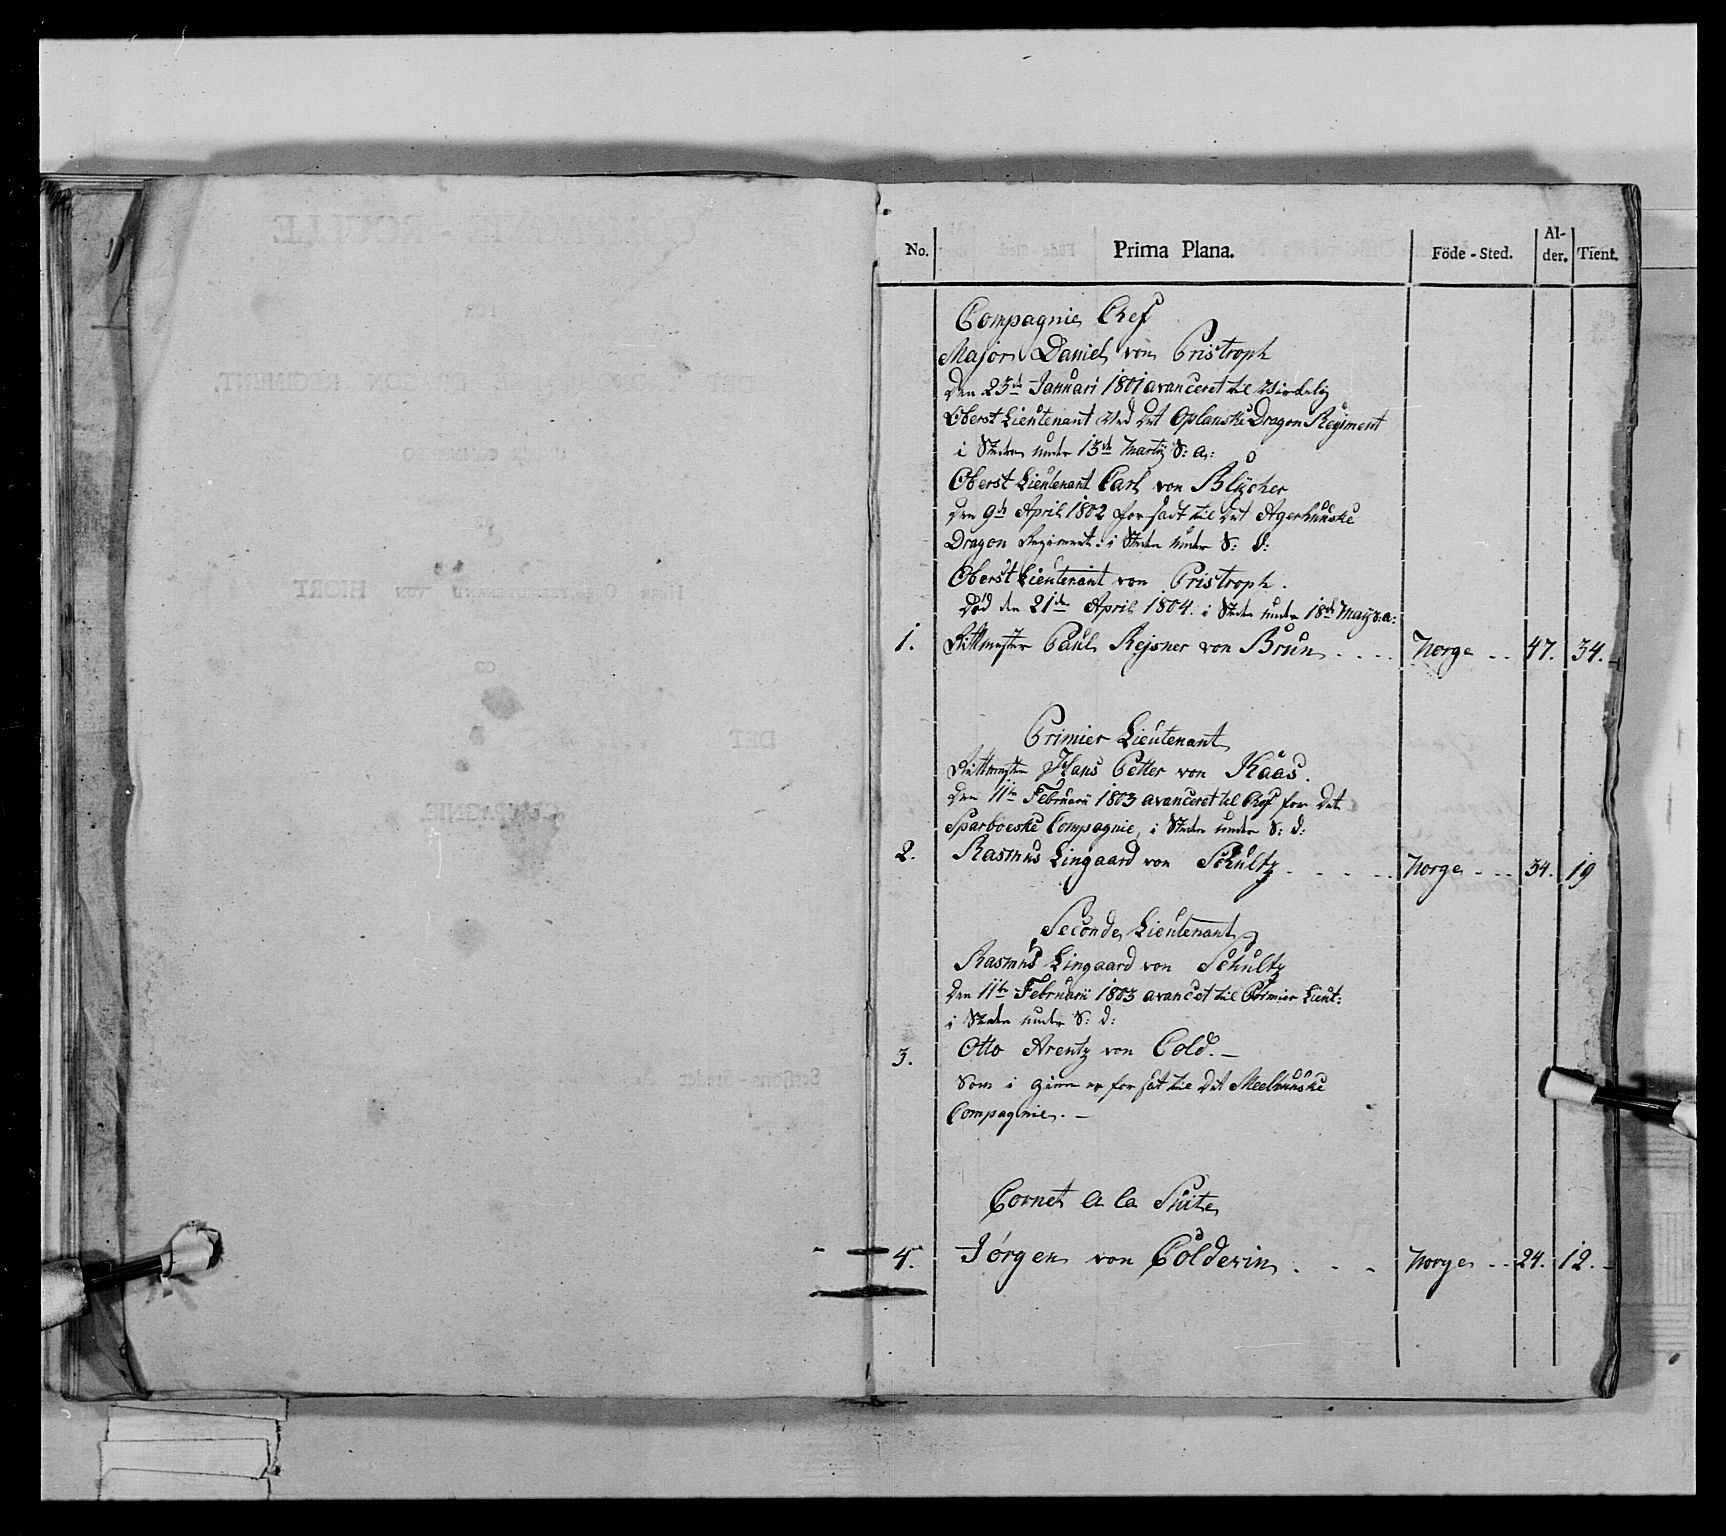 No. Prima Plana. Föde-Sted. Al-der. Tient.
Compagnie Chef
Major Daniel von Pristroph
Den 23de Januari 1801 avanceret til Virkelig
Oberst Lieutenant ved det Oplanske Dragon Regiment
i Steden under 13de Martij S: a:
Oberst Lieutenant Carl von Blücher
Den 9de April 1802 forsadt til det Agerhuuske
Dragon Regiment: i Steden under S: d:
Oberst Lieutenant von Pristroph.
Död den 21de April 1804. i Steden under 18de Maij s: a:
1. Rittmester Paul Rejsner von Brun . . . . Norge . . 47. 34.
Primier Lieutenant
Rittmester Hans Petter von Kaas.
Den 11te Februarii 1803 avanceret til Chef for det
Sparboeske Compagnie, i Steden under S: d:
2. Rasmus Lingaard von Schultz . . . . . Norge . . . 34. 19
Seconde Lieutenant
Rasmus Lingaard von Schultz
Den 11te Februarii 1803 avancet til Primier Lieut:
i Steden under S: d:
3. Otto Arentz von Cold. —
Som i gien er forsat til det Meelhuuske
Compagnie. —
Cornet a la Suite
4. Jörgen von Coldevin . . . Norge . . 24. 12.